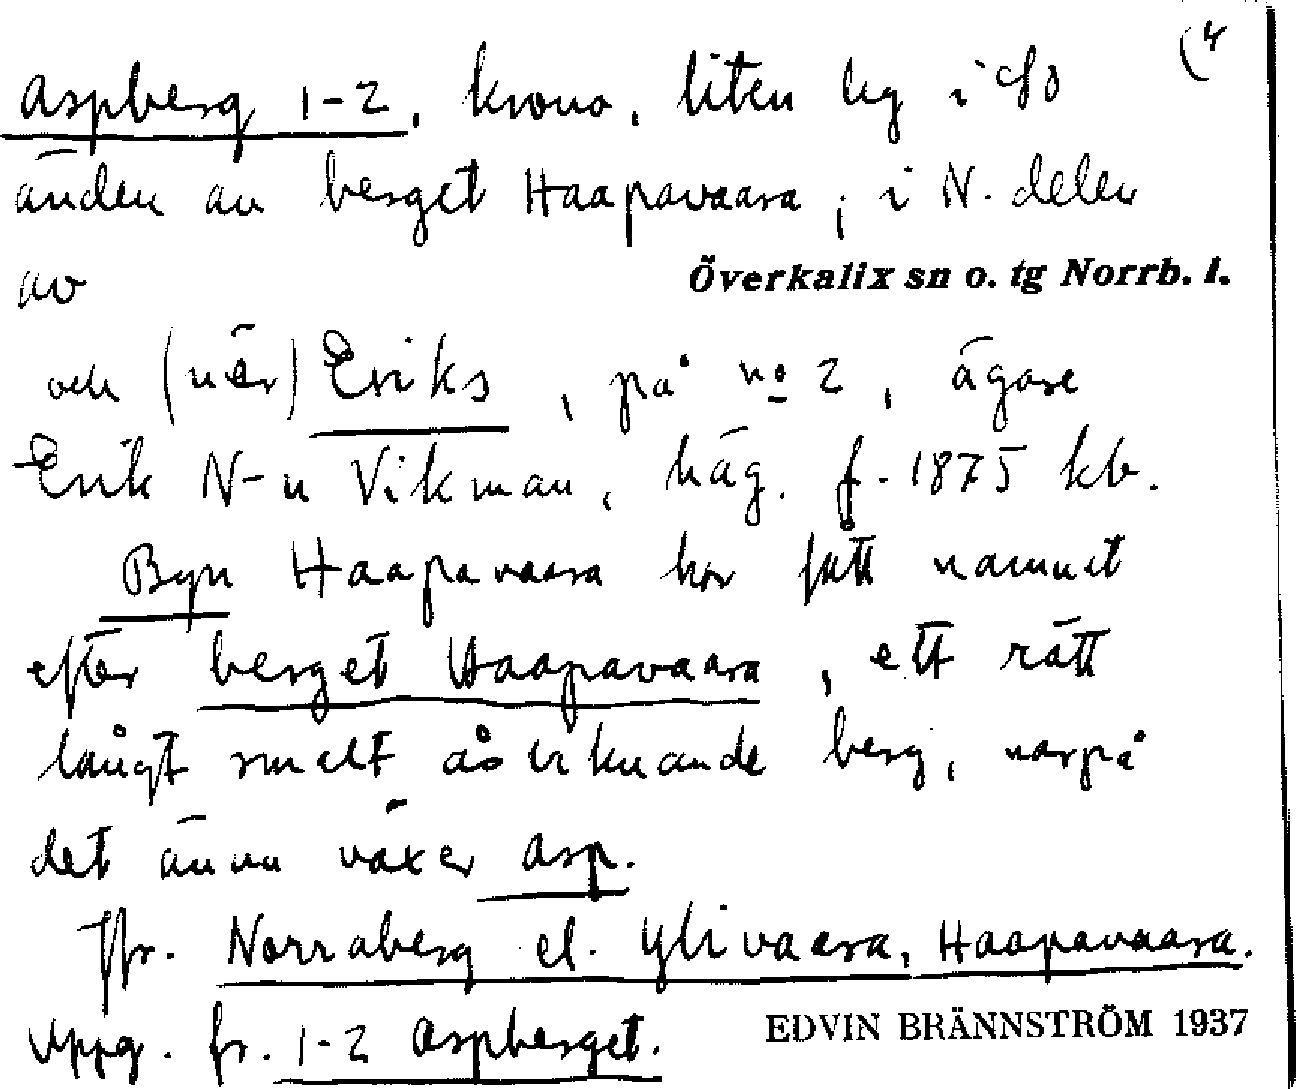 (4
Aspberg 1-2, krono, liten by i SO
änden av berget Haapavaara, i N. delen
av Överkalix sn o. tg Norrb. l.
och (när) Eriks, på no 2, ägare
Erik N-n Vikman, häg. f. 1875 kb.
Byn Haapavaara har fått namnet
efter berget Haapavaara, ett rätt
långt smalt åsliknande berg, varpå
det ännu växer asp.
Jfr. Norraberg el. Ylivaara, Haapavaara.
Uppg. fr. 1-2 Aspberget. EDVIN BRÄNNSTRÖM 1937